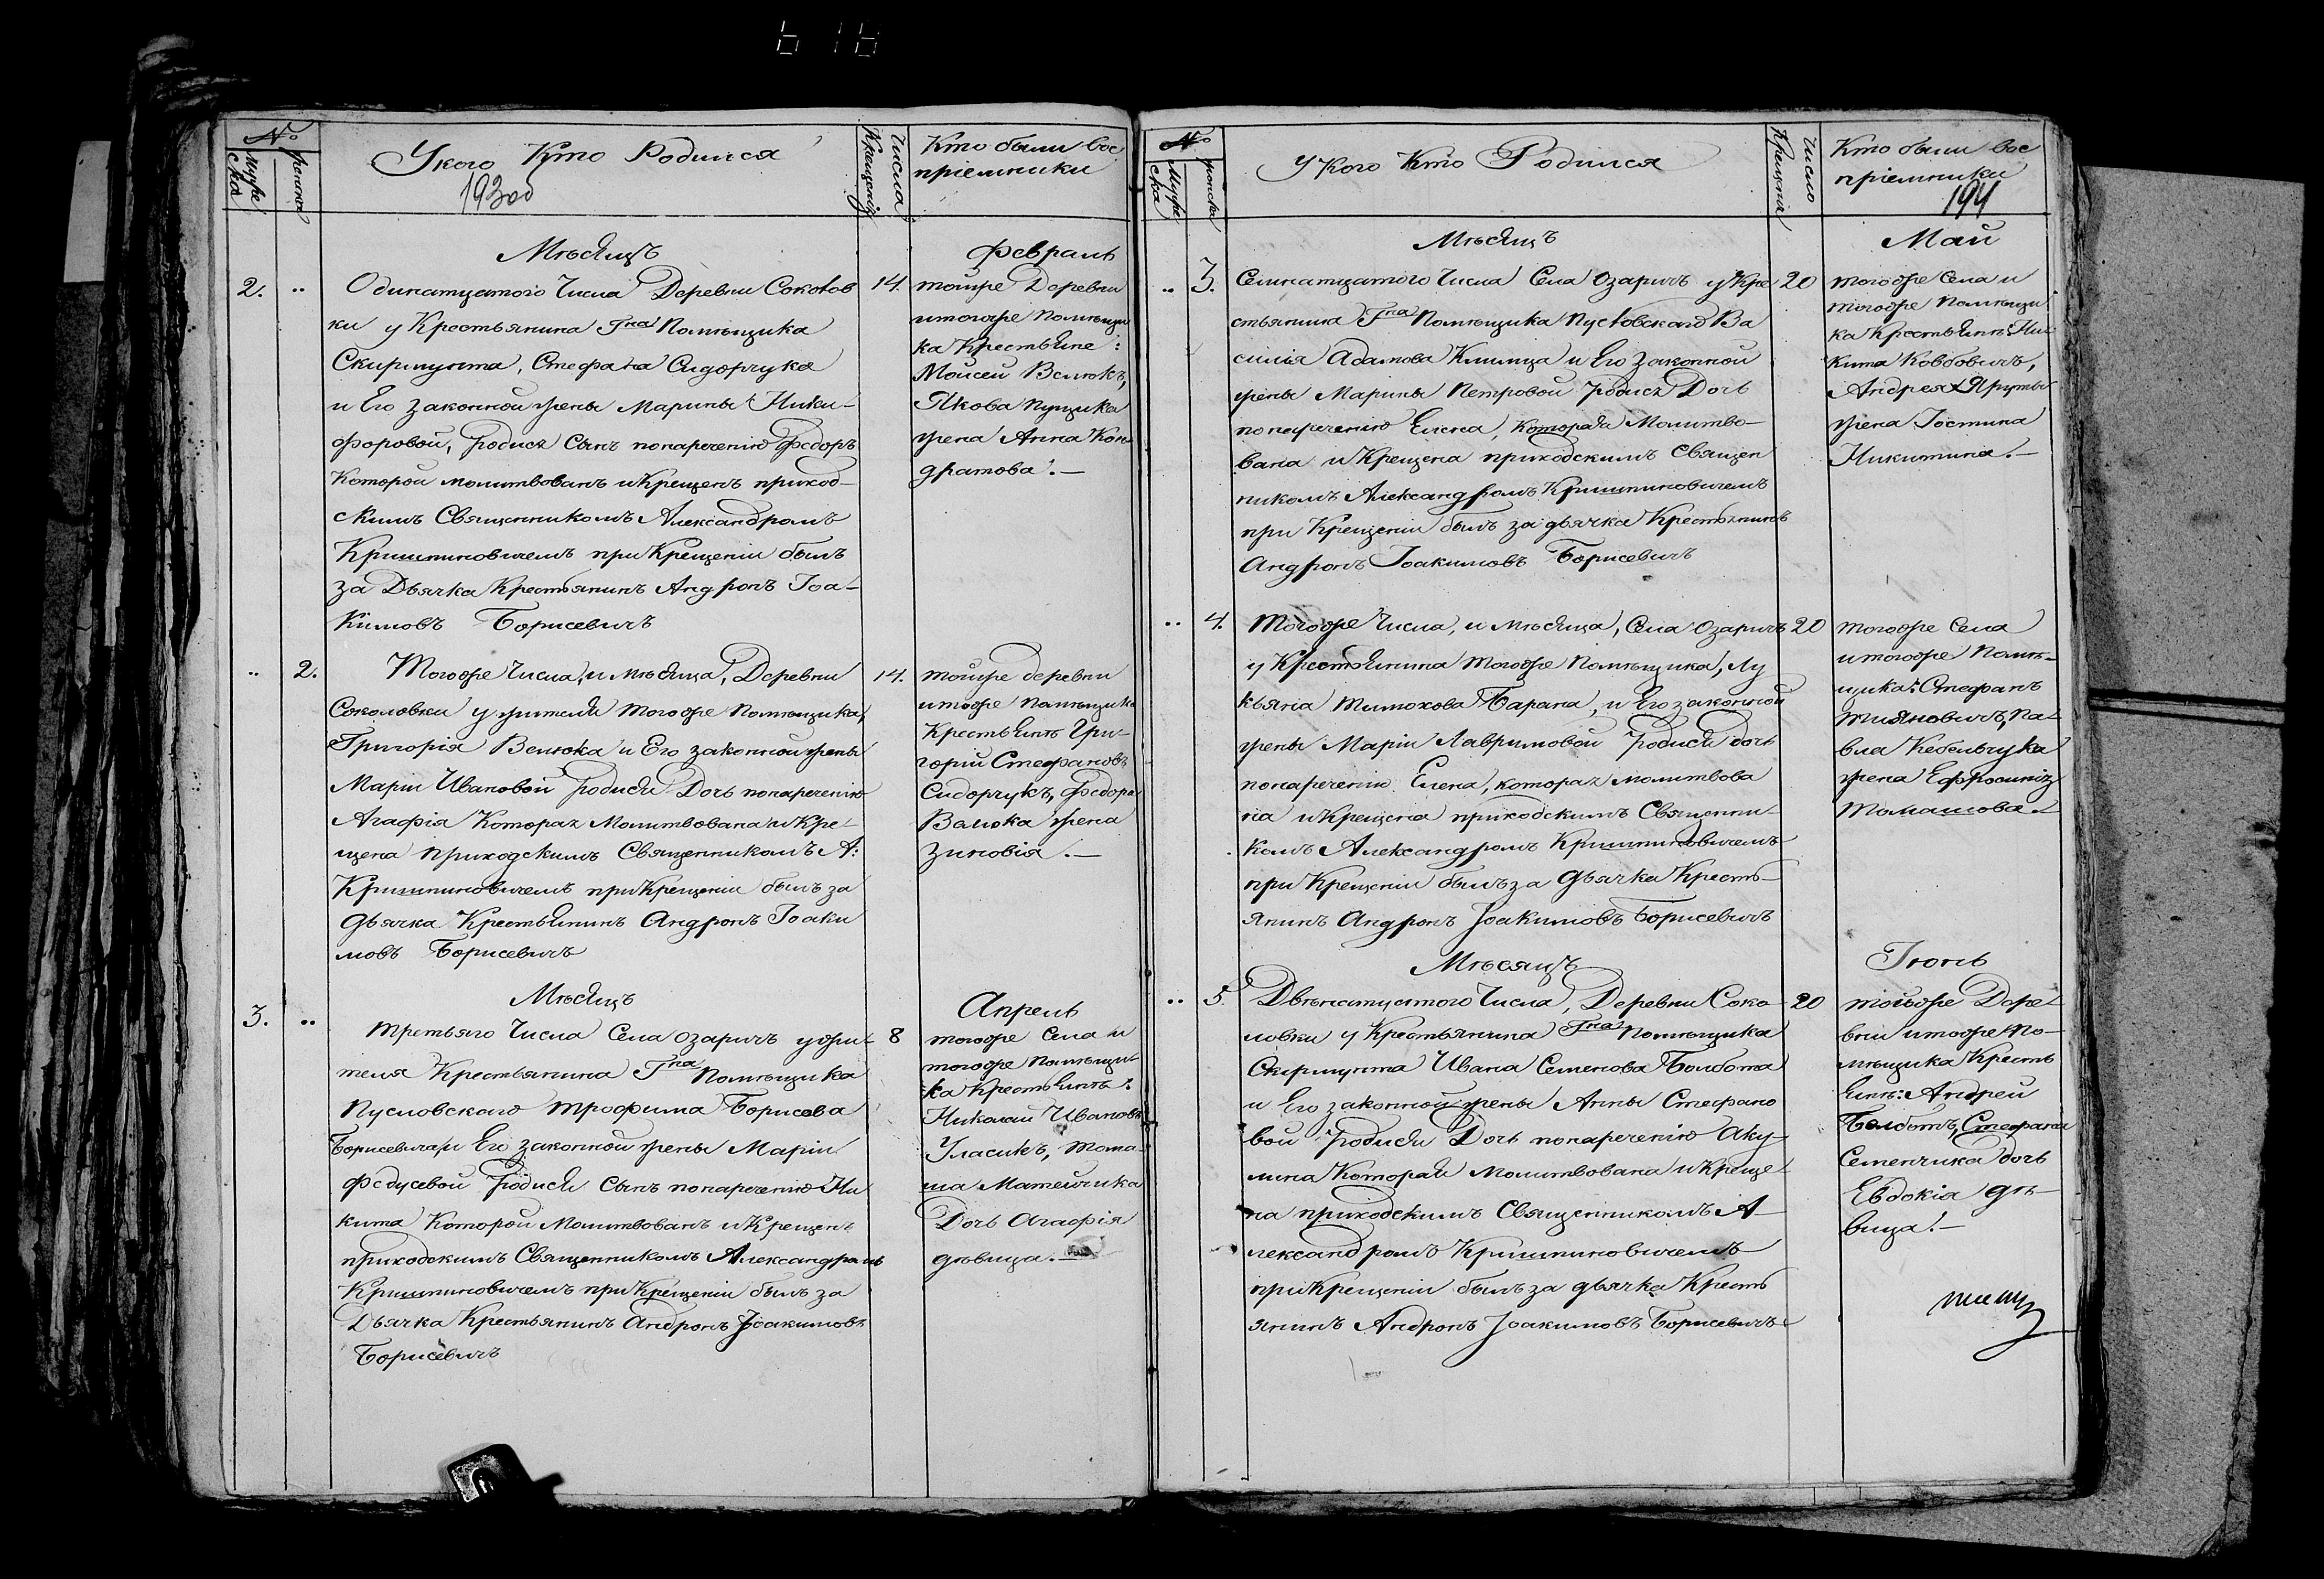 №
Мужеска
женска
У кого Кто Родился
193 об
Числа Крещенія
Кто были вос
пріемники
Мѣсяцъ
Февраль
2.
Одинатцатого Числа Деревни Соколов
ки у Крестьянина Гна Помѣщика
Скирмунта, Стефана Сидорчука
и Его законной жены Марины Ники-
форовой, Родися Сынъ понареченію Федоръ
Которой молитвованъ и Крещенъ приход-
скимъ Священникомъ Александромъ
Кришпиновичемъ при Крещеніи былъ
за Дьячка Крестьянинъ Андронъ Іоа-
кимовъ Борисевичъ
14.
тойже Деревни
и тогоже помѣщи
ка Крестьяне:
Мойсей Велюкъ,
Якова Пущика
жена Анна Кон-
дратова.—
2.
Тогоже Числа, и мѣсяца, Деревни
Соколовки у жителя тогоже помѣщика,
Григорія Велюка и Его законной жены
Маріи Ивановой Родися Дочь понареченію
Агафія Которая Молитвована и Кре-
щена приходскимъ Священникомъ А:
Кришпиновичемъ при Крещеніи былъ за
дьячка Крестьянинъ Андронъ Іоаки
мовъ Борисевичъ
14.
тойже деревни
и тоже помѣщика
Крестьянъ Гри-
горій Стефановъ
Сидорчукъ, Федора
Валюка жена
Зиновія.—
Мѣсяцъ
Апрель
3.
Третьяго Числа Села Озаричъ у жи-
теля Крестьянина Гна Помѣщика
Пусловскаго Трофима Борисова
Борисевича, и Его законной жены Маріи
Федусевой Родися сынъ понареченію Ни
кита Которой Молитвованъ и Крещенъ
приходскимъ Священникомъ Александромъ
Кришпиновичемъ при Крещеніи былъ за
Дьячка Крестьянинъ Андронъ Іоакимовъ
Борисевичъ
8
тогоже Села и
тогоже помѣщи-
ка Крестьянъ:
Николай Ивановъ
Уласикъ, Тома-
ша Матейчика
Дочь Агафія
дѣвица.—
№
Мужеска
женска
У кого Кто Родился
Число Крещенія
Кто были вос
пріемники
194
Мѣсяцъ
Май
3.
Семнатцатого Числа Села Озаричъ у Кре
стьянина Гна Помѣщика Пусловскаго Ва
силія Адамова Климца и Его Законной
жены Марины Петровой Родися Дочь
понареченію Елена, которая Молитво-
вана и Крещена приходскимъ Священ
никомъ Александромъ Кришпиновичемъ
при Крещеніи былъ за дьячка Крестьянинъ
Андронъ Іоакимовъ Борисевичъ
20
тогоже Села и
тогоже Помѣщи
ка Крестьянъ: Ни
кита
Андрея
жена Іостина
Никитина.—
4.
Тогоже Числа, и Мѣсяца, Села Озаричъ
у Крестьянина тогоже Помѣщика, Лу
кьяна Тимохова Барана, и Его законной
жены Маріи Лавримовой Родися дочь
понареченію Елена, которая молитвова
на и Крещена приходскимъ Священни-
комъ Александромъ Кришпиновичемъ
при Крещеніи былъ за дьячка Кресть-
янинъ Андронъ Іоакимовъ Борисевичъ
20
тогоже Села
и тогоже Помѣ-
щика: Стефанъ
Па-
вла Кебельчука
жена Ефросинія
Томашова.—
Мѣсяцъ
Іюнь
5.
Двѣнатцатого Числа, Деревни Соко-
ловки у Крестьянина Гна Помѣщика
Скирмунта Ивана Семенова Болбота
и Его законной жены Анны Стефано
вой Родися Дочь понареченію Аку-
лина Которая Молитвована и Креще
на приходскимъ Священникомъ А-
лександромъ Кришпиновичемъ
при Крещеніи былъ за дьячка Кресть
янинъ Андронъ Іоакимовъ Борисевичъ
20
тойже Дере-
вни и тоже По-
мѣщика Кресть
янъ: Андрей
Болботъ, Стефана
Семенчика дочь
Евдокія дѣ-
вица.—